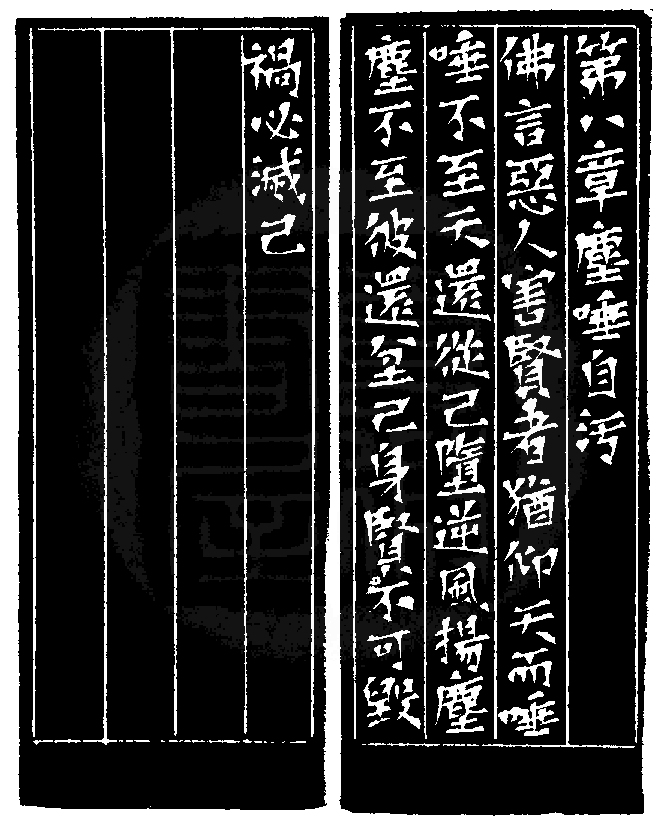 第八章塵唾自污
佛言惡人害賢者猶仰天而唾
唾不至天還從己墮逆風揚塵
塵不至彼還坌己身賢不可毀
禍必滅己